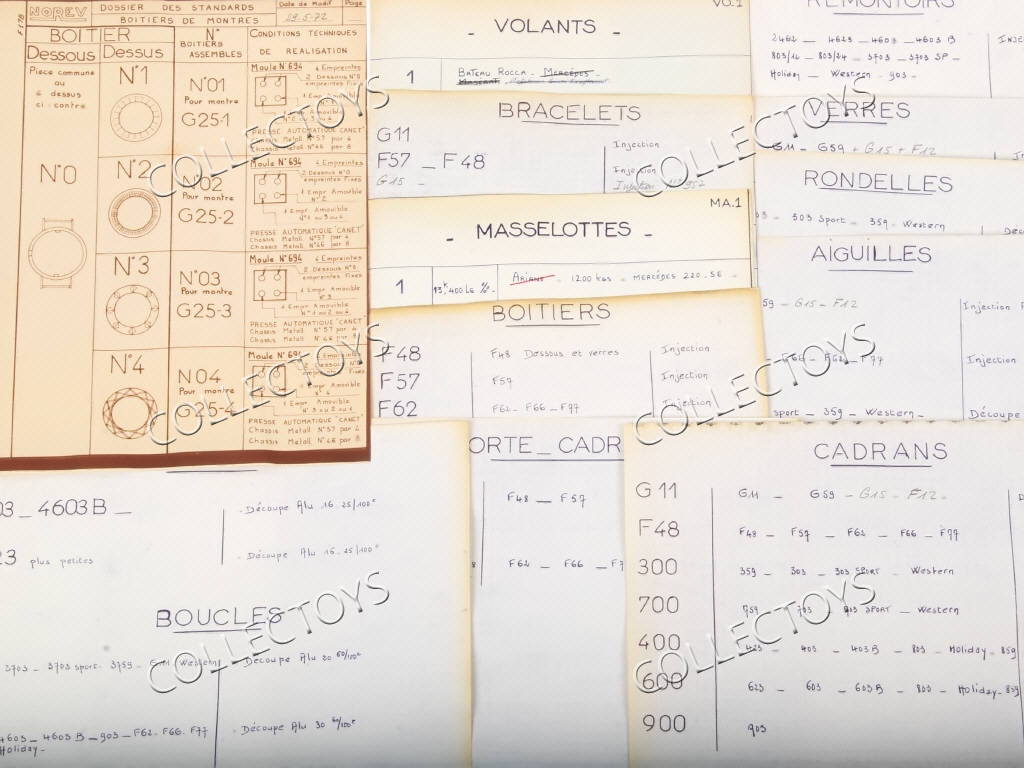 NOREV
DOSSIER DES STANDARDS
BOITIERS DE MONTRES
Date de Modif
29.5.72
Page
F178
BOITIER
Dessous Dessus
N°
BOITIERS
ASSEMBLES
CONDITIONS TECHNIQUES
DE REALISATION
Piece commune
au
4 dessus
ci-contre
N°0
N°1
N°01
Pour montre
G25-1
Moule N°694
4 Empreintes
2 Dessous N°0
empreintes Fixes
1 Empr Amovible
PRESSE AUTOMATIQUE "CANET"
Chassis Metall N°57 par 4
Chassis Metall N°46 par 8
N°2
N°02
Pour montre
G25-2
Moule N°694
4 Empreintes
2 Dessous N°0
empreintes Fixes
1 Empr Amovible
N°2
1 Empr. Amovible
N°1 ou 3 ou 4
PRESSE AUTOMATIQUE "CANET"
Chassis Metall N°57 par 4
Chassis Metall N°46 par 8
N°3
N°03
Pour montre
G25-3
Moule N°694
4 Empreintes
2 Dessous N°0
empreintes Fixes
1 Empr Amovible
N°3
1 Empr Amovible
N°1 ou 2 ou 4
PRESSE AUTOMATIQUE "CANET"
Chassis Metall N°57 par 4
Chassis Metall N°46 par 8
N°4
N°04
Pour montre
G25-4
Moule N°694
4 Empreintes
1 Empr Amovible
PRESSE AUTOMATIQUE "CANET"
Chassis Metall N°57 par 4
Chassis Metall N°46 par 8
VO.1
- VOLANTS -
1
Bateau Rocca - Mercédès -
BRACELETS
G11
Injection
F57 - F48
Injection
G15 -
Injection
MA.1
- MASSELOTTES -
1
Ariane - 1200 kgs - Mercédes 220.SE -
BOITIERS
F48
F48 Dessous et verres
Injection
F57
F57
Injection
F62
F62- F66 - F77
Injection
REMONTOIRS
2462 - 4623 - 4603 - 4603 B
803/14 - 803/24 - 3703 - 3703 SP -
Holiday - Western - 903 -
VERRES
G11 - G59 + G15 + F12
RONDELLES
303 Sport - 359 - Western
AIGUILLES
G15 - F12
Injection
F66 - F62 - F77
Injection
sport - 359 - Western -
Découpe
03 - 4603 B -
- Découpe Alu 16.25/100e
23 plus petites
- Découpe Alu 16-25/100e
BOUCLES
3703 - 3703 sport. 3759 - G11 Western
- Découpe Alu 30 60/100e
4603 - 4603 B - 903 - F62 - F66. F77
Holiday -
- Découpe Alu 30 60/100e
ORTE - CADR
F48 - F57
F62 - F66 - F7
CADRANS
G11
G11 - G59 - G15 - F12 -
F48
F48 - F57 - F62 - F66 - F77
300
359 - 303 - 303 SPORT - Western
700
759 - 703 - 703 SPORT - Western
400
423 - 403 - 403 B - 803 - Holiday - 859
600
623 - 603 - 603 B - 800 - Holiday - 859
900
903
COLLECTOYS
COLLECTOYS
COLLECTOYS
COLLECTOYS
COLLECTOYS
COLLECTOYS